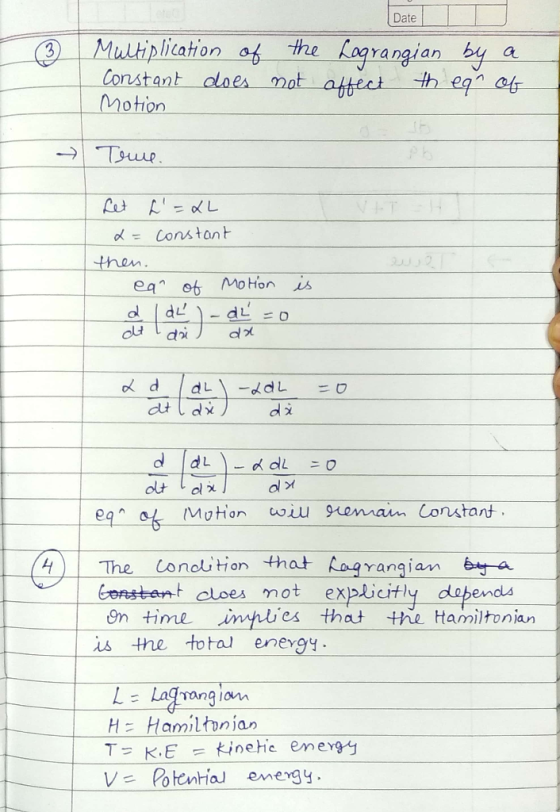 Date
③ Multiplication of the Lagrangian by a
Constant does not affect th eqⁿ of
Motion
→ True.
Let L' = αL
α = constant
then.
eqⁿ of Motion is
d/dt (dL'/dẋ) - dL'/dx = 0
α d/dt (dL/dẋ) - α dL/dẋ = 0
d/dt (dL/dẋ) - α dL/dx = 0
eqⁿ of Motion will remain Constant.
④ The Condition that Lagrangian by a
Constant does not explicitly depends
on time implies that the Hamiltonian
is the total energy.
L = Lagrangian
H = Hamiltonian
T = K.E = Kinetic energy
V = Potential energy.